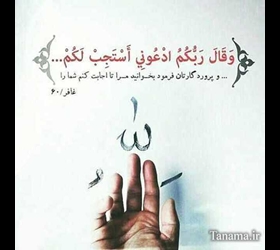 وَقَالَ رَبُّكُمُ ادْعُونِي أَسْتَجِبْ لَكُمْ...
... و پروردگارتان فرمود بخوانید مـرا تا اجابت کنم شما را
غافر/۶۰
لله
Tanama.ir